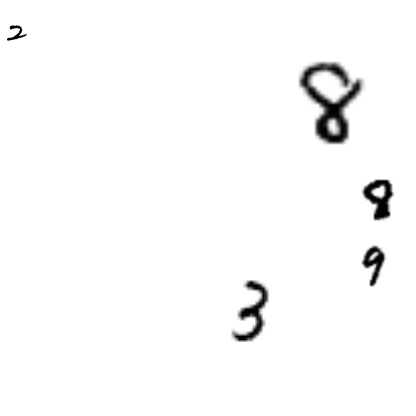 2
8
8
9
3